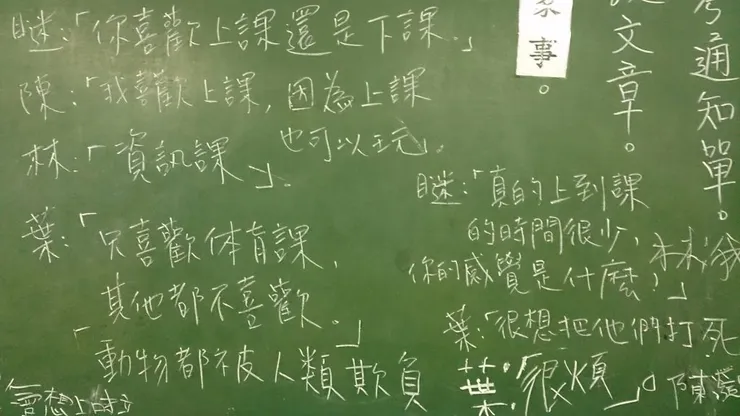 謎:「你喜歡上課還是下課。」
陳:「我喜歡上課, 因為上課
也可以玩」。
林:「資訊課」。
葉:「只喜歡体育課,
其他都不喜歡。」
「動物都被人類欺負
會想上
謎:「真的上到課
的時間很少,
你的感覺是什麼,」
葉:「很想把他們打死
葉:「很煩」。
陳
林
事。
文章。
通知單。